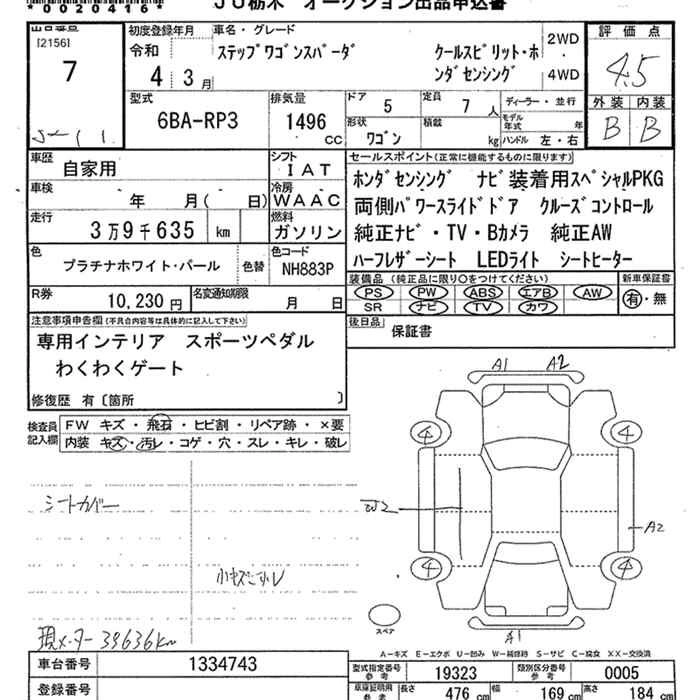 *0020416*
JU栃木 オークション出品申込書
[2156]
7
初度登録年月
令和
4 3月
車名・グレード
ステップワゴンスパーダ
クールスピリット・ホンダセンシング
2WD
4WD
評価点
4.5
外装 内装
B B
型式
6BA-RP3
排気量
1496 cc
ドア 5
定員 7 人
形状 ワゴン
積載 kg
ディーラー・並行
モデル年式 年
ハンドル 左・右
車歴 自家用
シフト IAT
車検 年 月( 日)
冷房 WAAC
走行 3万9千635 km
燃料 ガソリン
色 プラチナホワイト・パール
色替
色コード NH883P
R券 10,230円
名変通知期限 月 日
セールスポイント(正常に機能するものに限ります)
ホンダセンシング ナビ装着用スペシャルPKG
両側パワースライドドア クルーズコントロール
純正ナビ・TV・Bカメラ 純正AW
ハーフレザーシート LEDライト シートヒーター
装備品 (純正品に限り○をつけてください)
PS PW ABS エアB AW
SR ナビ TV カワ
新車保証書
有・無
後日品 保証書
注意事項申告欄(不具合内容等は具体的に記入して下さい)
専用インテリア スポーツペダル
わくわくゲート
修復歴 有〔箇所 〕
検査員記入欄
FW キズ・飛石・ヒビ割・リペア跡・×要
内装 キズ・汚レ・コゲ・穴・スレ・キレ・破レ
シートカバー
小キズ
現メーター 39636km
A1 A2
4 4
W2
A2
4 4
A1
スペア
A-キズ E-エクボ U-凹み W-補修跡 S-サビ C-腐食 XX-交換済
車台番号 1334743
登録番号
型式指定番号 参考 19323
類別区分番号 参考 0005
車庫証明用 参考
長さ 476 cm
幅 169 cm
高さ 184 cm